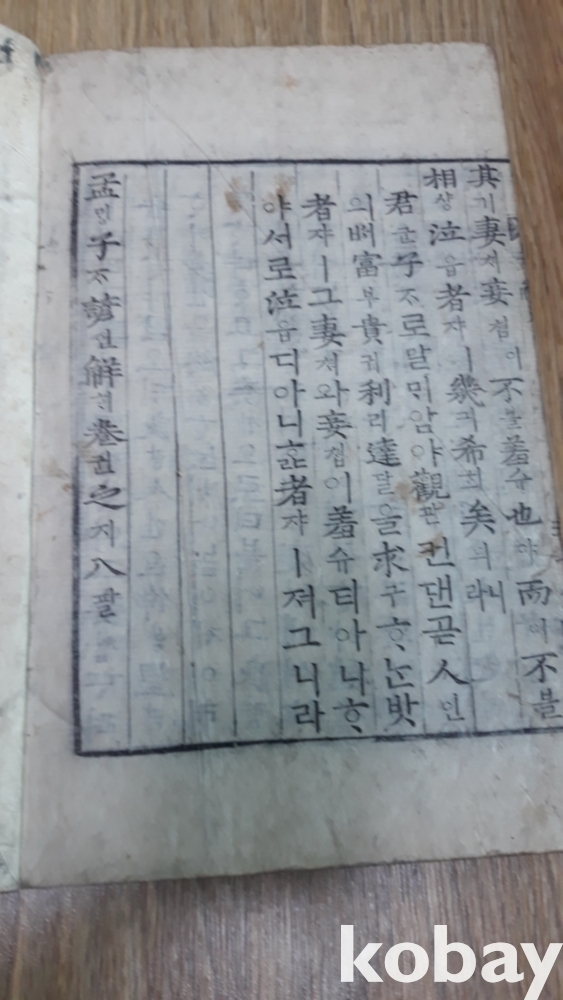 其기妻쳐妾쳡이不블羞슈也야而이不블
相상泣읍者쟈ㅣ幾긔希희矣의니라
君군子ᄌᆞ로말믜암아觀관컨댄곧人인
의ᄡᅥ富부貴귀利리達달을求구ᄒᆞᄂᆞᆫ밧
者쟈ㅣ그妻쳐와妾쳡이羞슈티아니ᄒᆞ
야서로泣읍디아니ᄒᆞᆯ者쟈ㅣ져그니라
孟ᄆᆡᆼ子ᄌᆞ諺언解ᄒᆡ卷권之지八팔
kobay